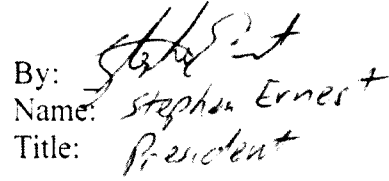 By:
Name: Stephen Ernest
Title: President